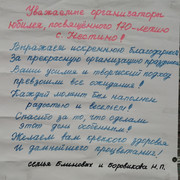 Уважаемые организаторы
юбилея, посвящённого 170-летию
с. Костино!
Выражаем искреннюю благодарность
За прекрасную организацию праздника
Ваши усилия и творческий подход
превзошли все ожидания!
Каждый момент был наполнен
радостью и весельем!
Спасибо за то, что сделали
этот день особенным!
Желаем вам крепкого здоровья
и дальнейшего процветания!
семья Блинович и Боровикова Н.П.